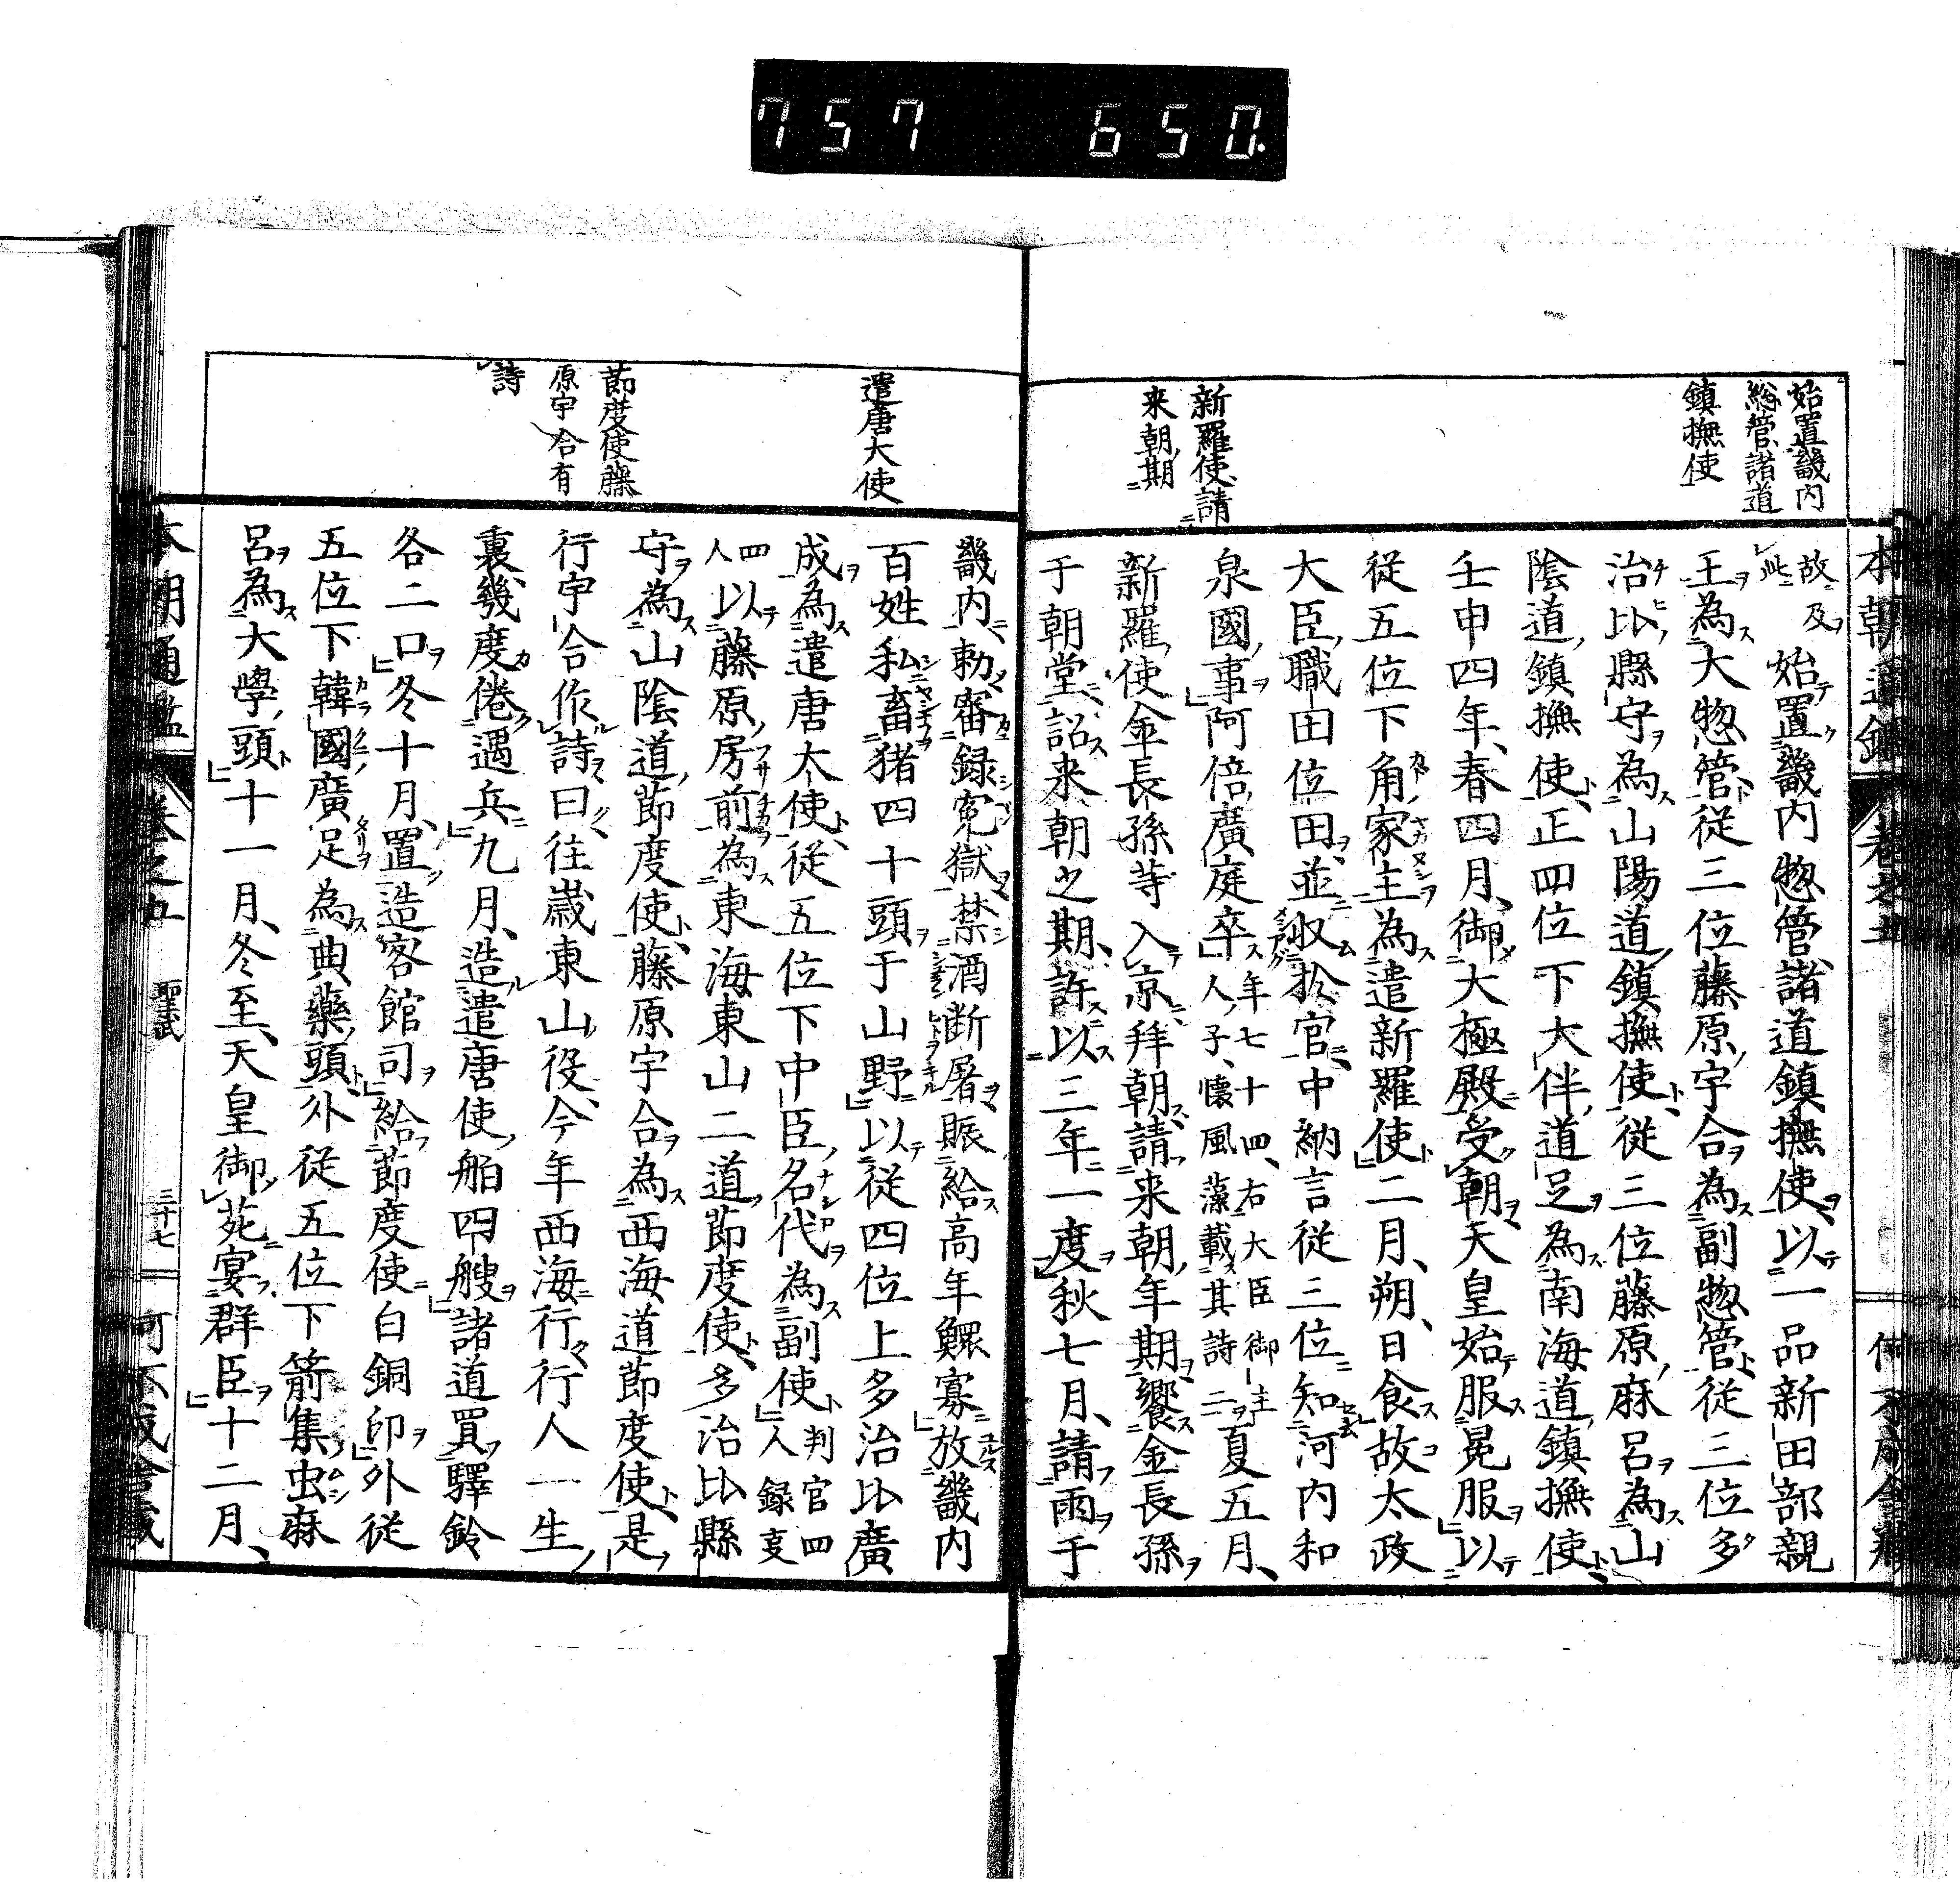 757 650.
始置畿内
総管諸道
鎮撫使
新羅使請
来朝期
故及
此
始置畿内惣管諸道鎮撫使以一品新田部親
王為大惣管従三位藤原宇合為副惣管従三位多
治比縣守為山陽道鎮撫使従三位藤原麻呂為山
陰道鎮撫使正四位下大伴道足為南海道鎮撫使
壬申四年春四月御大極殿受朝天皇始服冕服以
従五位下角家主為遣新羅使二月朔日食故太政
大臣職田位田並収於官中納言従三位知河内和
泉國事阿倍廣庭卒
年七十四右大臣御主
人子懐風藻載其詩二
夏五月
新羅使金長孫等入京拜朝請来朝年期饗金長孫
于朝堂詔来朝之期許以三年一度秋七月請雨于
本朝通鑑
巻之五
遣唐大使
節度使藤
原宇合有
詩
畿内勅審録冤獄禁酒断屠賑給高年鰥寡放畿内
百姓私畜猪四十頭于山野以従四位上多治比廣
成為遣唐大使従五位下中臣名代為副使
判官四
人録事
四
人
以藤原房前為東海東山二道節度使多治比縣
守為山陰道節度使藤原宇合為西海道節度使是
行宇合作詩曰往歳東山役今年西海行行人一生
裏幾度倦邊兵九月造遣唐使舶四艘諸道買驛鈴
各二口冬十月置造客館司給節度使白銅印外従
五位下韓國廣足為典藥頭外従五位下箭集虫麻
呂為大學頭十一月冬至天皇御苑宴群臣十二月
本朝通鑑
巻之五
聖武
三十七